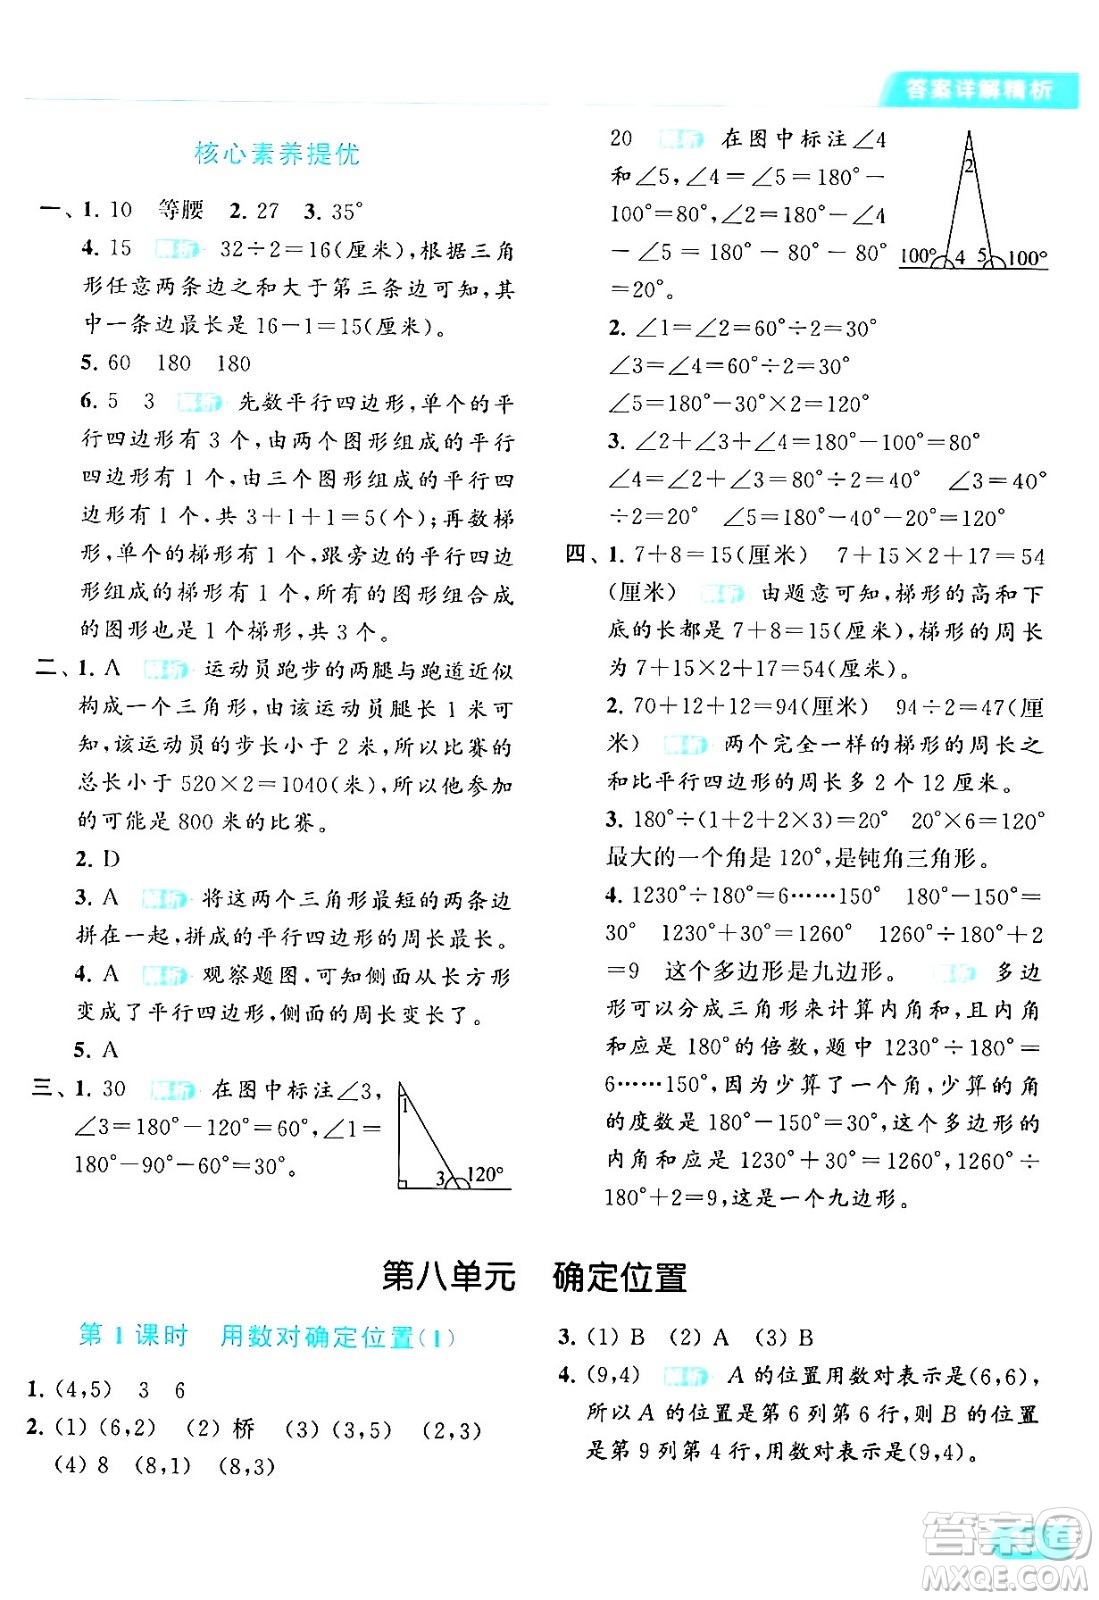 答案详解精析
核心素养提优
一、1. 10 等腰 2. 27 3. 35°
4. 15 解析 32÷2=16(厘米),根据三角
形任意两条边之和大于第三条边可知,其
中一条边最长是 16-1=15(厘米)。
5. 60 180 180
6. 5 3 解析 先数平行四边形,单个的平
行四边形有 3 个,由两个图形组成的平行
四边形有 1 个,由三个图形组成的平行四
边形有 1 个,共 3+1+1=5(个);再数梯
形,单个的梯形有 1 个,跟旁边的平行四边
形组成的梯形有 1 个,所有的图形组合成
的图形也是 1 个梯形,共 3 个。
二、1. A 解析 运动员跑步的两腿与跑道近似
构成一个三角形,由该运动员腿长 1 米可
知,该运动员的步长小于 2 米,所以比赛的
总长小于 520×2=1040(米),所以他参加
的可能是 800 米的比赛。
2. D
3. A 解析 将这两个三角形最短的两条边
拼在一起,拼成的平行四边形的周长最长。
4. A 解析 观察题图,可知侧面从长方形
变成了平行四边形,侧面的周长变长了。
5. A
三、1. 30 解析 在图中标注∠3,
∠3=180°-120°=60°,∠1=
180°-90°-60°=30°。
1
3 120°
20 解析 在图中标注∠4
和∠5,∠4=∠5=180°-
100°=80°,∠2=180°-∠4
-∠5=180°-80°-80°
=20°。
2
100° 4 5 100°
2. ∠1=∠2=60°÷2=30°
∠3=∠4=60°÷2=30°
∠5=180°-30°×2=120°
3. ∠2+∠3+∠4=180°-100°=80°
∠4=∠2+∠3=80°÷2=40° ∠3=40°
÷2=20° ∠5=180°-40°-20°=120°
四、1. 7+8=15(厘米) 7+15×2+17=54
(厘米) 解析 由题意可知,梯形的高和下
底的长都是 7+8=15(厘米),梯形的周长
为 7+15×2+17=54(厘米)。
2. 70+12+12=94(厘米) 94÷2=47(厘
米) 解析 两个完全一样的梯形的周长之
和比平行四边形的周长多 2 个 12 厘米。
3. 180°÷(1+2+2×3)=20° 20°×6=120°
最大的一个角是 120°,是钝角三角形。
4. 1230°÷180°=6……150° 180°-150°=
30° 1230°+30°=1260° 1260°÷180°+2
=9 这个多边形是九边形。 解析 多边
形可以分成三角形来计算内角和,且内角
和应是 180°的倍数,题中 1230°÷180°=
6……150°,因为少算了一个角,少算的角
的度数是 180°-150°=30°,这个多边形的
内角和应是 1230°+30°=1260°,1260°÷
180°+2=9,这是一个九边形。
第八单元 确定位置
第 1 课时 用数对确定位置(1)
1. (4,5) 3 6
2. (1) (6,2) (2) 桥 (3) (3,2) (2,3)
(4) 8 (8,1) (8,3)
3. (1) B (2) A (3) B
4. (9,4) 解析 A 的位置用数对表示是(6,6),
所以 A 的位置是第 6 列第 6 行,则 B 的位置
是第 9 列第 4 行,用数对表示是(9,4)。
答案圈
MXQE.COM